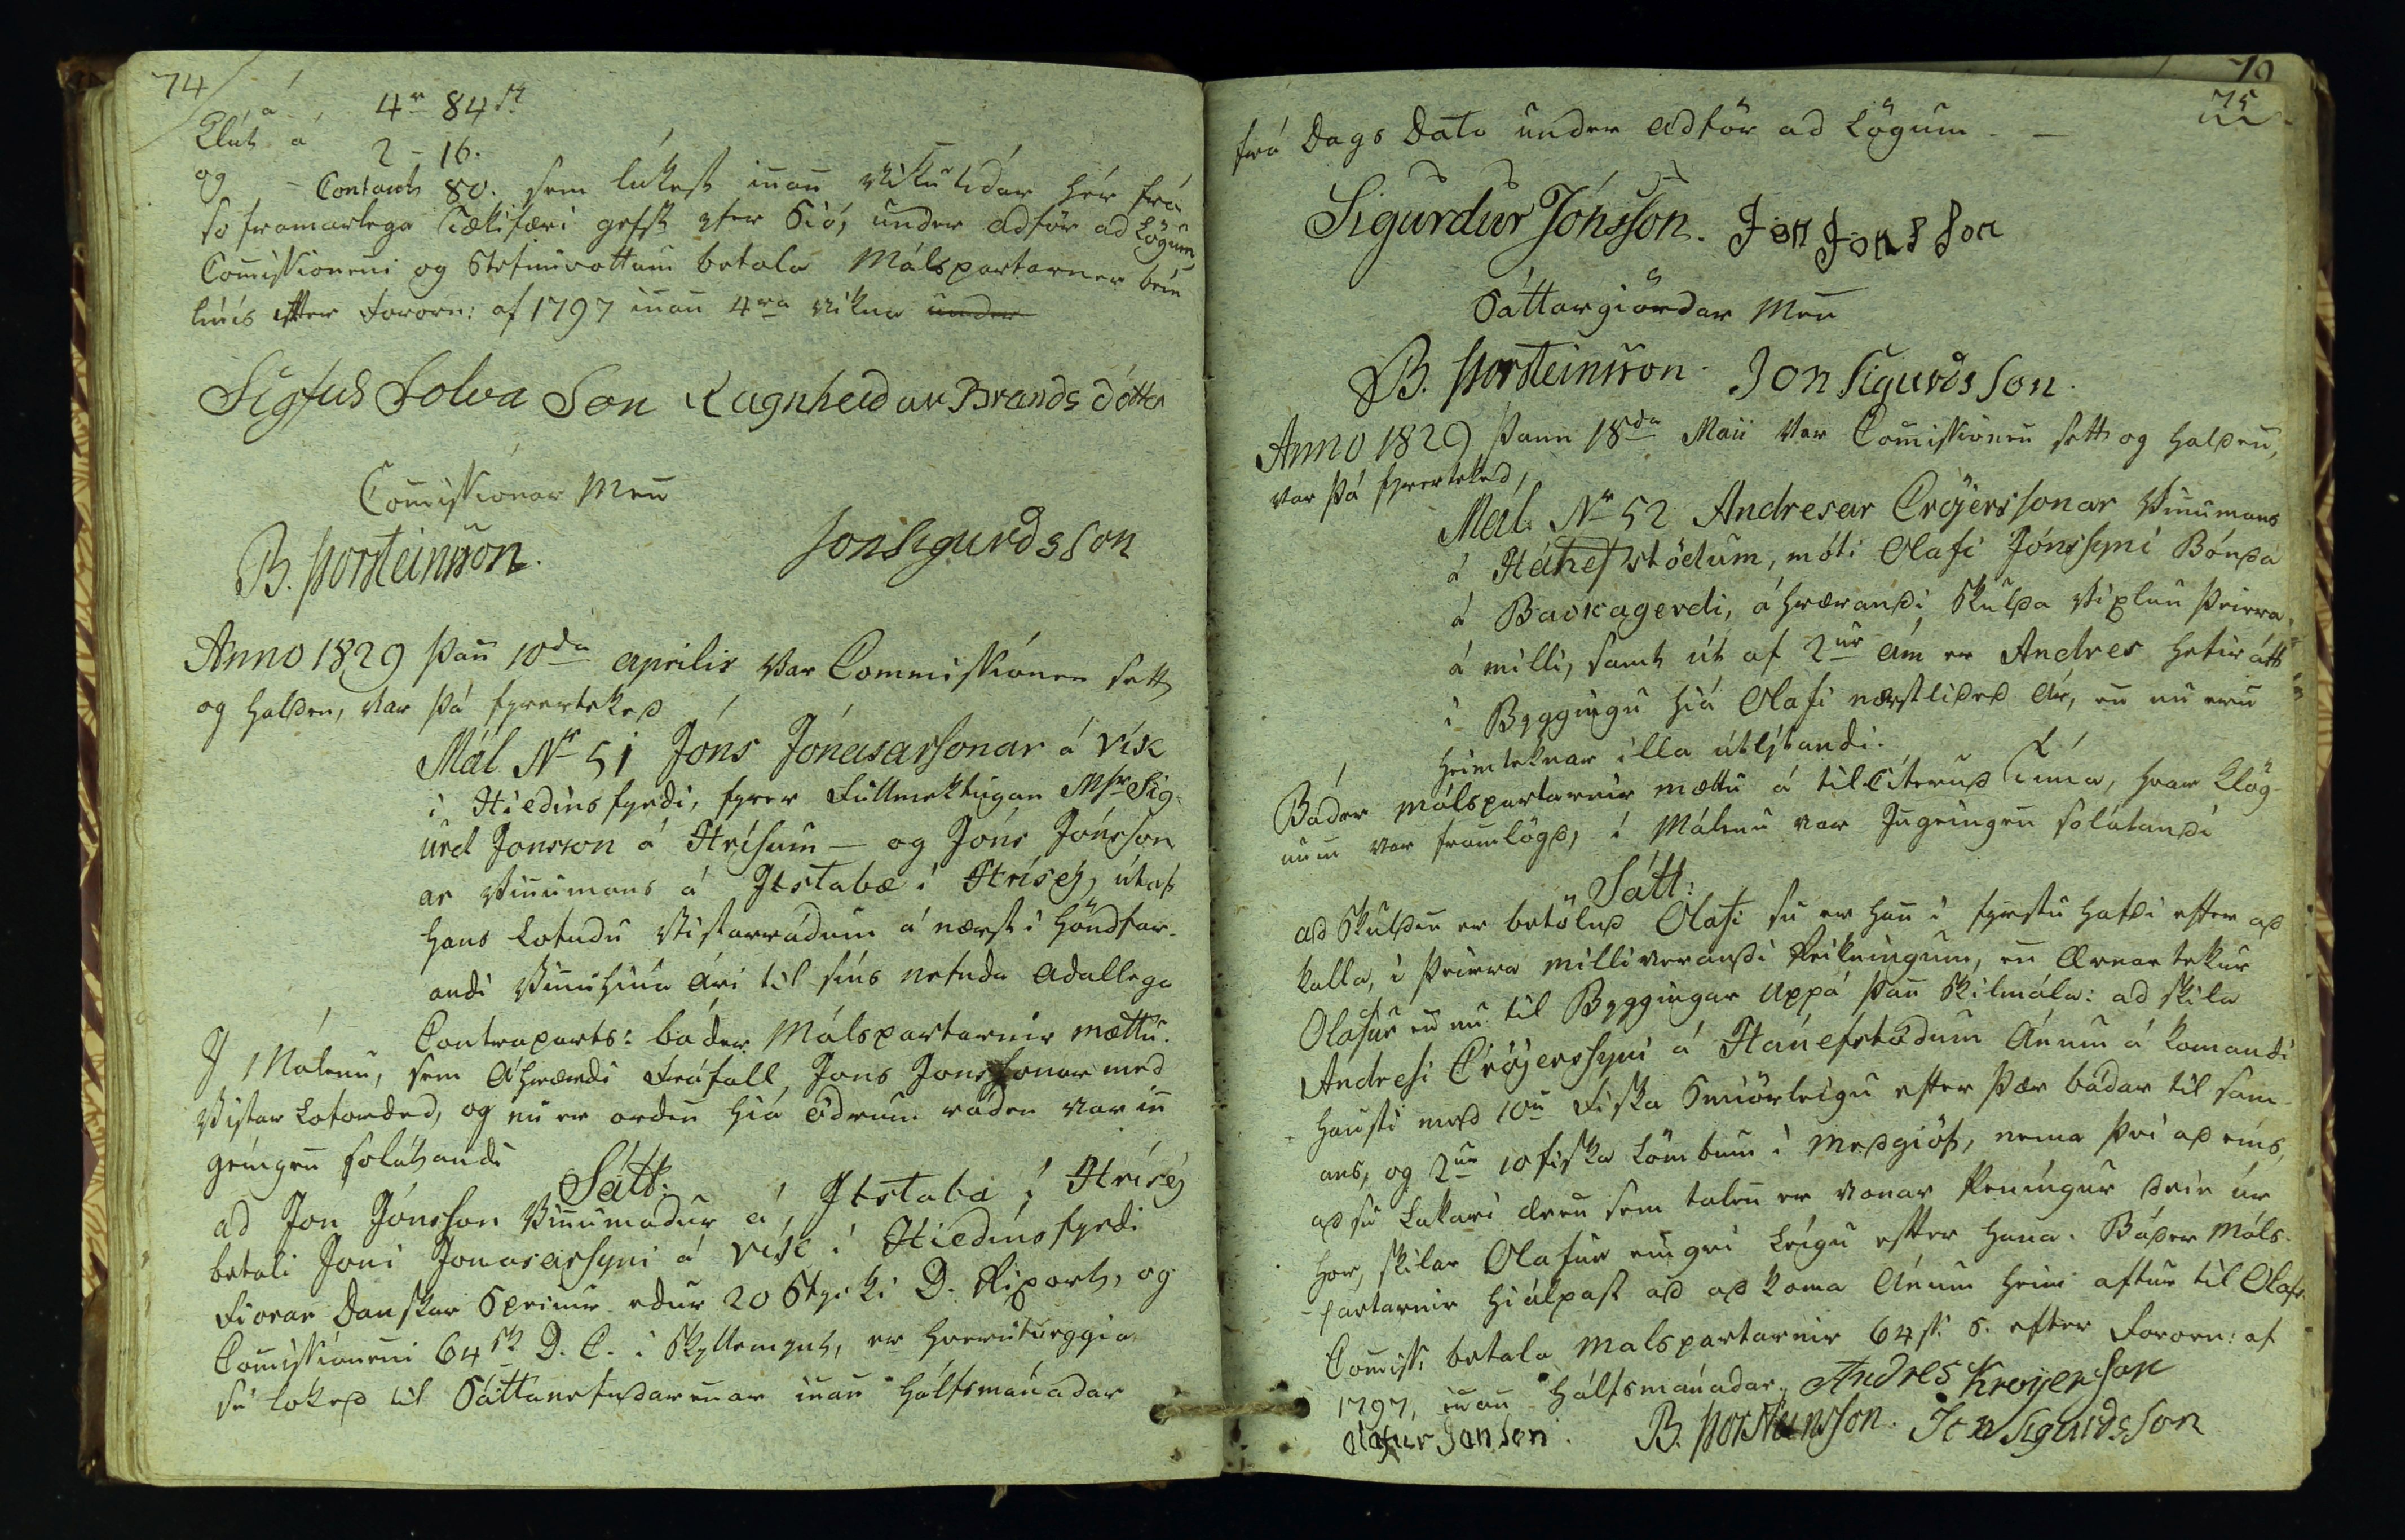 74
Klút á 4r 84 sk
og á 2 - 16.
- Contant 80. sem lúkest innan Vikutídar hér frá
so framarlega Tækifæri gefst yfer Sió, under adför ad Lögum,
Commissioneni og Stefnuvottum betala Málspartarner bein
línis efter Fororn: af 1797 innan 4ra Vikna under
Sigfus Solva Son Ragnheidur Brands dótter
Commissionar Menn
B. Þorsteinsson. Jon Sigurdsson
Anno 1829 þann 10da aprilis Var Commissionen sett
og halden, var þá fyrertekeð
Mál No 51 Jóns Jónasarsonar á Vík
i Hiedinsfyrdi, fyrer Fullmektugan Msr Sig-
urd Jonsson á Hrísum — og Jóns Jónsson
ar Vinnumans á Ystabæ i Hrísey, útaf
hans Lofudu Vistarrádum á næst i hönd far-
andi Vinnuhiúa Ári til síns nefnda Adallega
Contraparts: báder Málspartarnir mættu.
I Málenu, sem áhrærdi Fráfall, Jons Jonssonar med
Vistar Loforded, og nú er orden hiá ödrum ráden var in
geingen solátandi
Sátt:
ad Jon Jónsson Vinnumadur á Ystabæ i Hrísey
betali Joni Jonasarsyni á Vík i Hiedinsfyrdi
Fiorar Danskar Speciur edur 20 Stycki D. Riport, og
Commissioneni 64 sk D. C. i Skyllemynt, er hverutueggia
sé lokeð til Sáttanefndarennar innan hálfsmánadar
70
75
frá Dags Dato under adför ad Lögum — —
Sigurdur Jónsson. Jon Jons son
Sáttargiördar Menn
B. Þorsteinsson. Jon Sigurds son.
Anno 1829 þann 18da Maii Var Commissionen sett og halden,
var þá fyrerteked,
Mál. No 52 Andresar Crøyerssonar Vinnumans
á Hánefstödum, móti Olafi Jónssyni Bónda
á Backagerdi, áhrærandi Skulda Viplun þeirra
á milli, samt út af 2ur ám er Andres hefir átt
i Byggingu hiá Olafi næstlided Ár, en nu eru
heimteknar illa útlýtandi.
Báder málspartarnir mættu á tilCiterud Tima, hvar Klög-
unin var framlögd, i Málenu var Ingeingen solátandi
Sátt:
ad Skulden er betölud Olafi sú er hann i fyrstu hafdi efter ad
kalla, i þeirra milliverandi Reikningum, en Ærnar tekur
Olafur en nu til Byggingar uppá þann Skilmála: ad skila
Andresi Cröyerssyni á Hánefsstödum Ánum á komandi
hausti med 10u Fiska Smiörleigu efter þær bádar til sam-
ans, og 2ur 10 fiska Lömbum i Medgiöf, nema þvi ad eins,
ad sú Lakari ærin sem talen er vonar Peningur deir úr
hor, skilar Olafur eingri Leigu efter hana. Báder Máls-
partarnir hiálpast ad ad koma Ánum heim aftur til Olafs.
Commiss. betala Malspartarnir 64 sk. S. efter Fororn: af
1797, innan hálfsmánadar. Andres Kroyerson
Olafur Jonsson. B. Þorsteinsson. Jon Sigurdsson